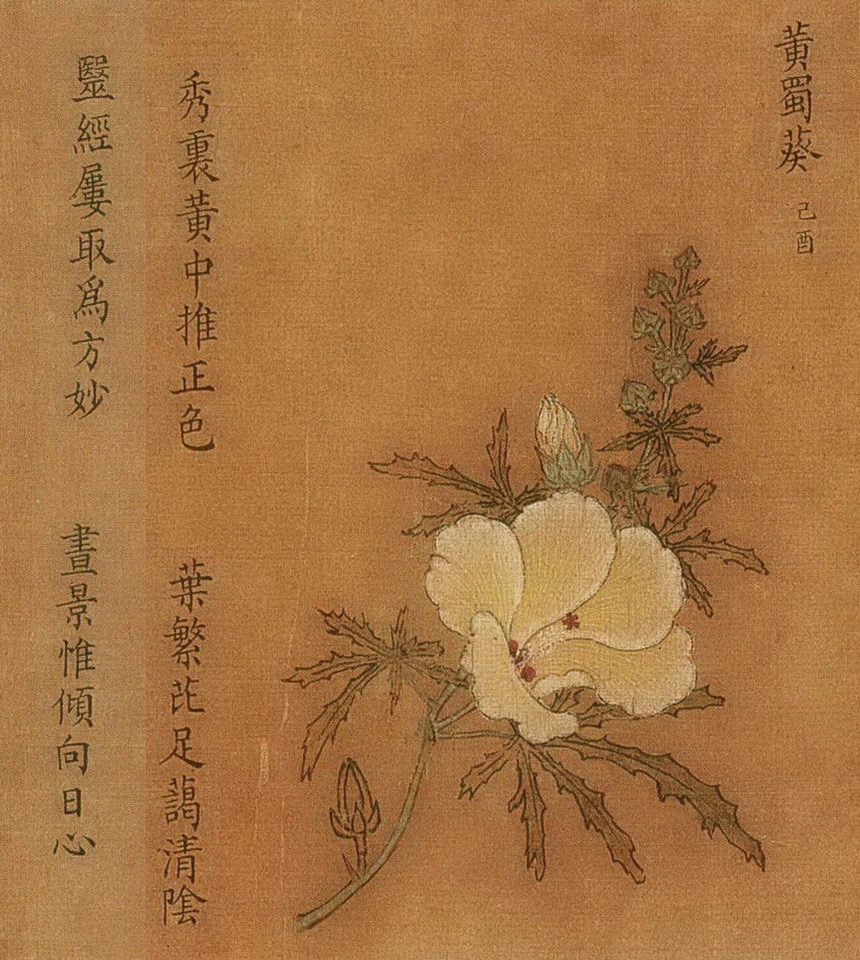 黃蜀葵
己酉
秀裏黃中推正色
葉繁芘足藹清陰
毉經屢取爲方妙
晝景惟傾向日心